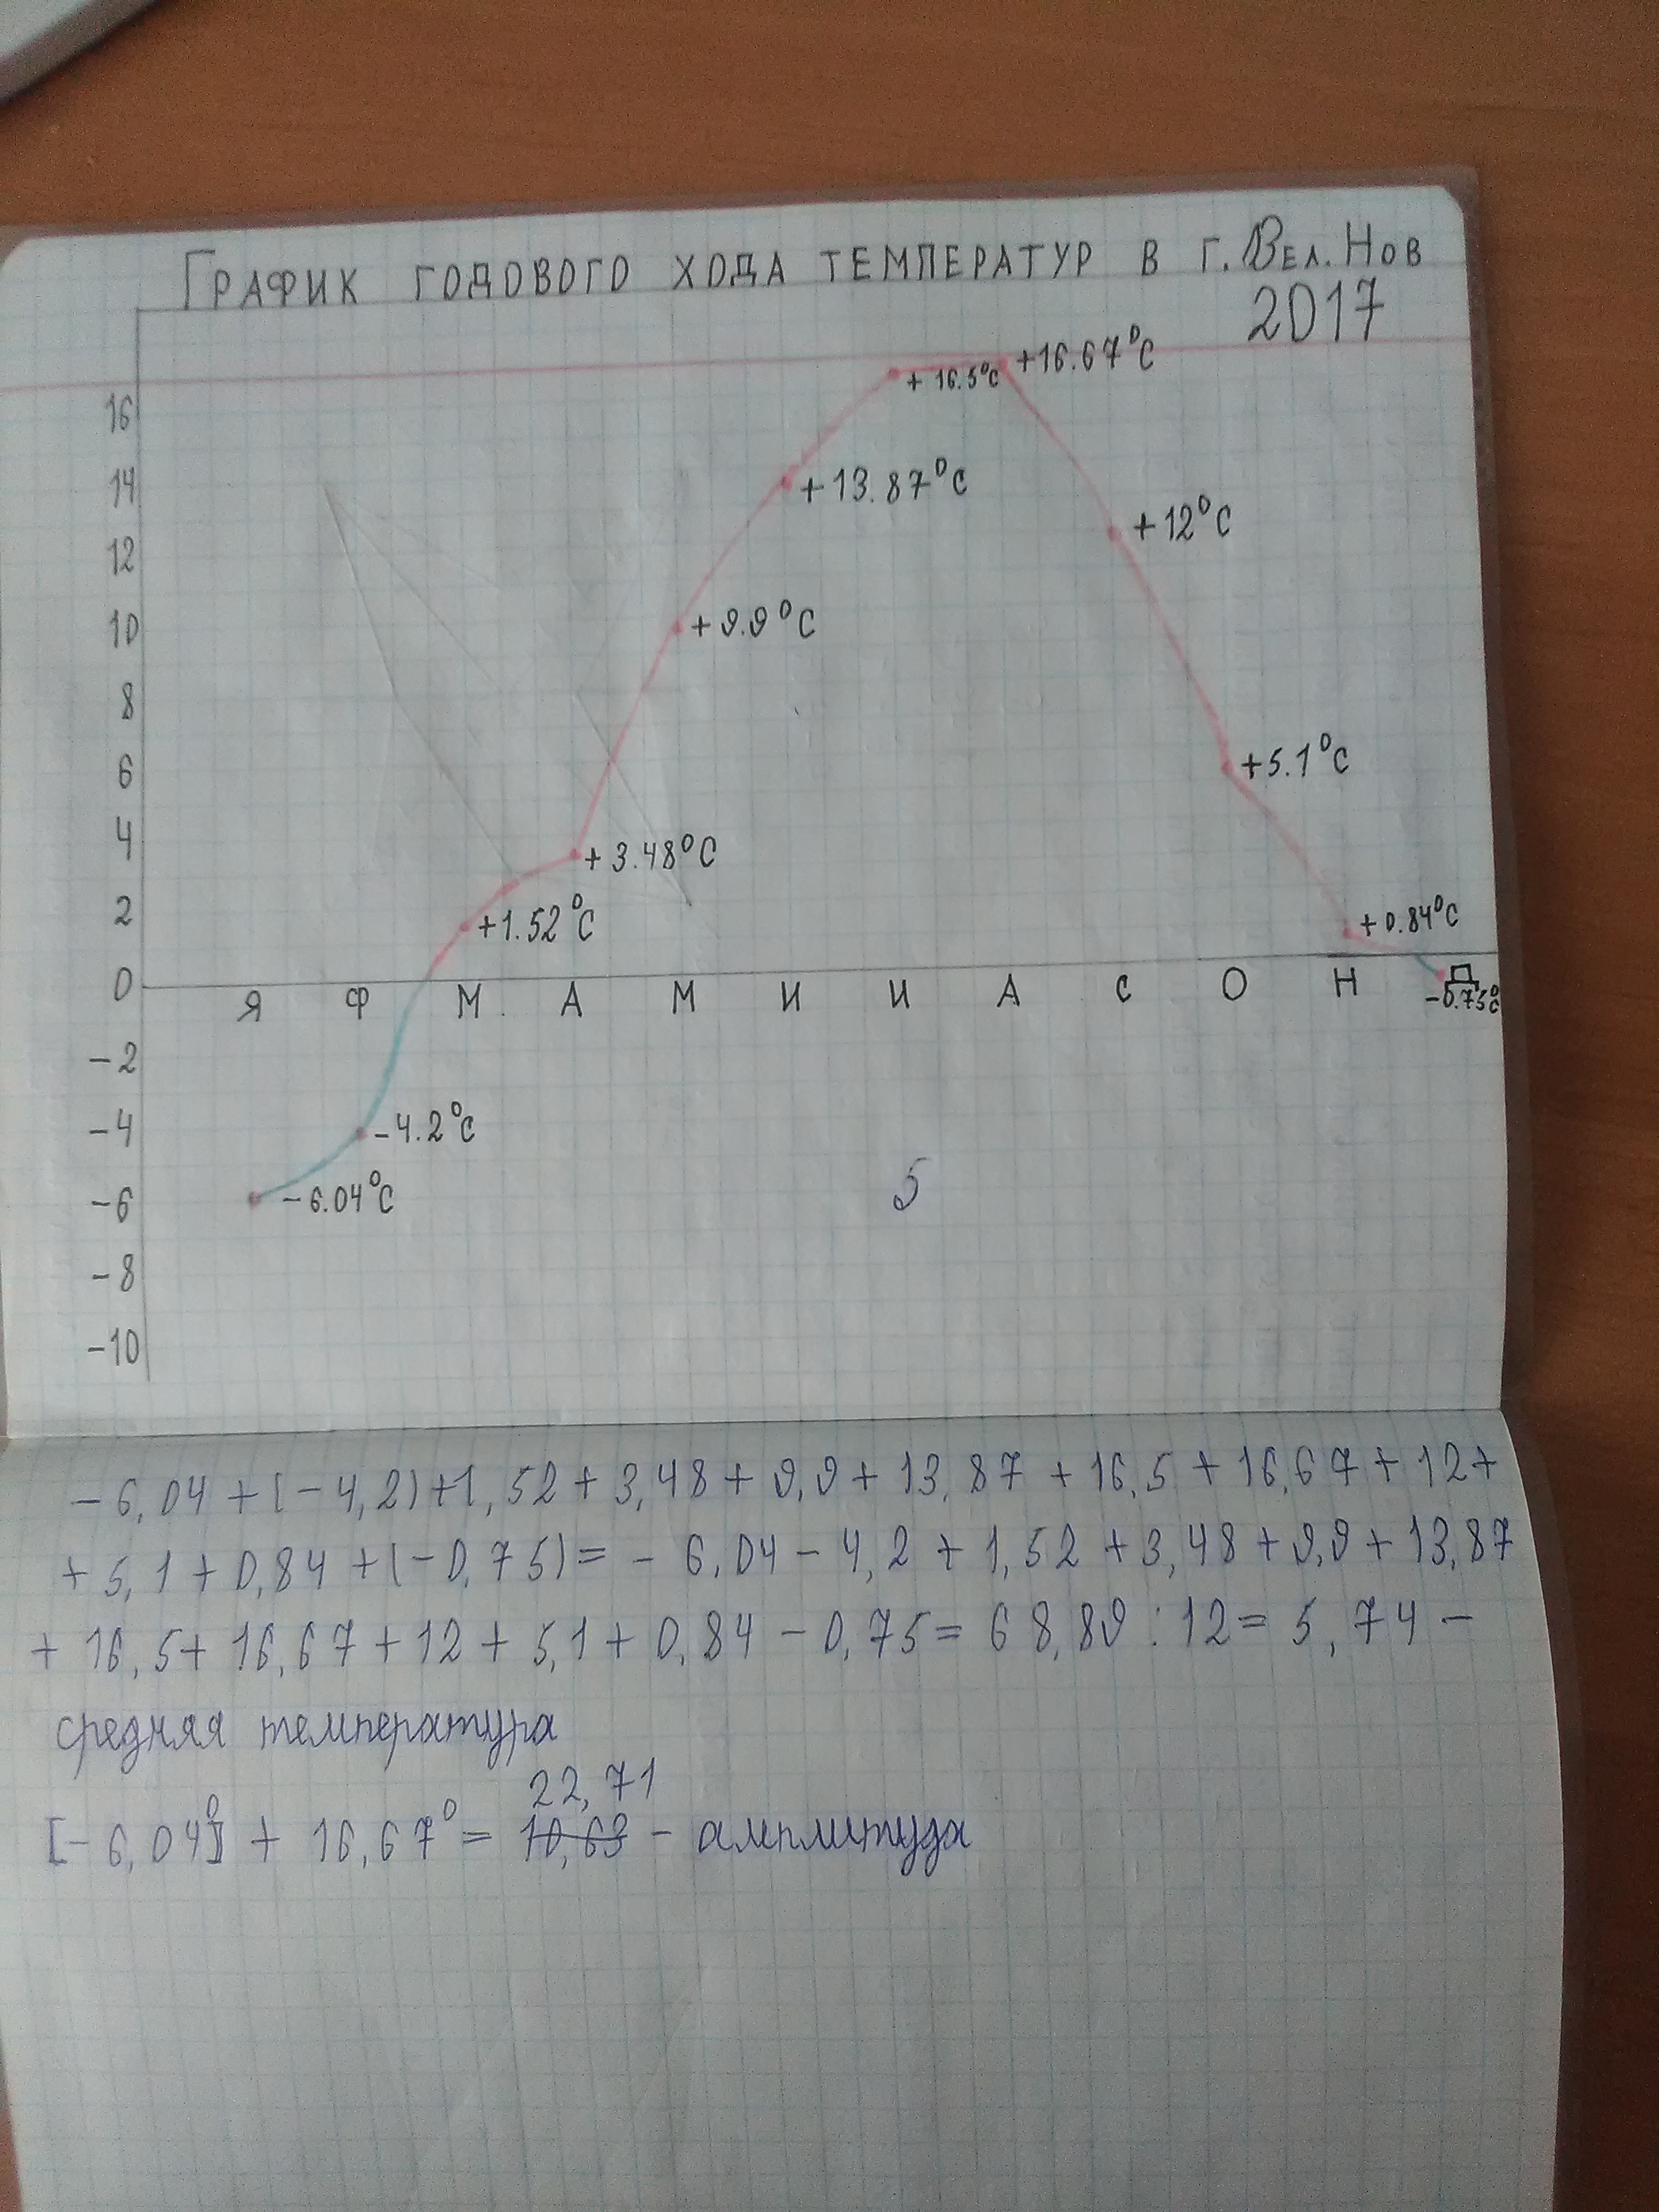 ГРАФИК ГОДОВОГО ХОДА ТЕМПЕРАТУР В Г. ВЕЛ. НОВ
2017
16
14
12
10
8
6
4
2
0
-2
-4
-6
-8
-10
-6.04°С
-4.2°С
+1.52°С
+3.48°С
+9.9°С
+13.87°С
+16.5°С
+16.67°С
+12°С
+5.1°С
+0.84°С
-0.75°С
Я Ф М. А М И И А С О Н Д
5
-6,04+(-4,2)+1,52+3,48+9,9+13,87+16,5+16,67+12+
+5,1+0,84+(-0,75)=-6,04-4,2+1,52+3,48+9,9+13,87
+16,5+16,67+12+5,1+0,84-0,75=68,89:12=5,74-
средняя температура
22,71
[-6,04°]+16,67°=10,63-амплитуда